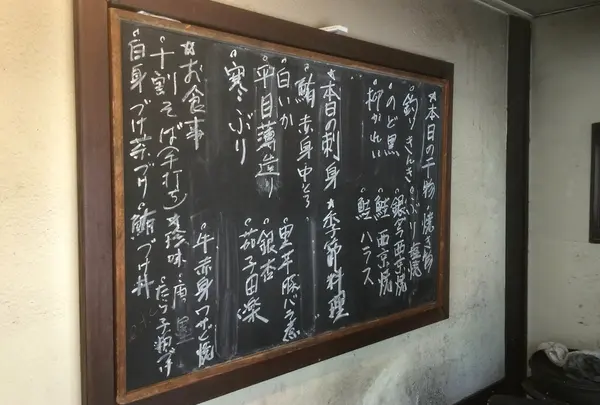 ★本日の干物、焼き物
釣きんき
のど黒
柳かれい
ぶり塩焼
銀鱈西京焼
鮭西京焼
鮭ハラス
★本日の刺身
鮪 赤身 中とろ
白いか
平目薄造り
寒ぶり
★季節料理
里芋豚バラ煮
銀杏
茄子田楽
牛赤身つつじ焼
★お食事
十割そば(手打ち)
白身づけ茶づけ
鮪づけ丼
★珍味
たっ子粕づけ